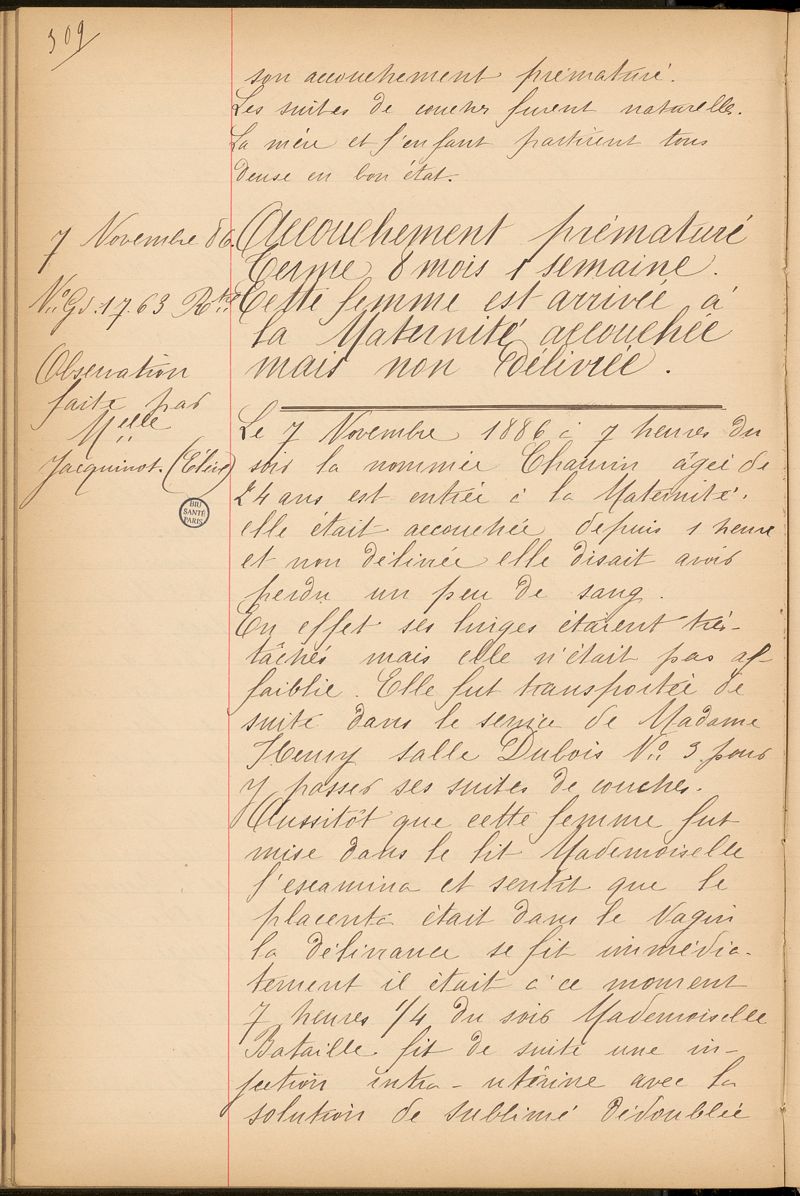 309
son accouchement prématuré.
Les suites de couches furent naturelles.
La mère et l'enfant partirent tous
deuse en bon état.
7 Novembre 86.
No Gd. 1763 Rtre
Observation
faite par
Melle
Jacquinot. (Elève)
BIU
SANTÉ
PARIS
Accouchement prématuré
Terme 8 mois 1 semaine.
Cette femme est arrivée à
la Maternité accouchée
mais non délivrée.
Le 7 Novembre 1886 à 7 heures du
soir la nommée Chauvin âgée de
24 ans est entrée à la Maternité.
elle était accouchée depuis 1 heure
et non délivrée elle disait avoir
perdu un peu de sang.
En effet ses linges étaient très-
tâchés mais elle n'était pas af-
faiblie. Elle fut transportée de
suite dans le service de Madame
Henry salle Dubois No 3 pour
y passer ses suites de couches.
Aussitôt que cette femme fut
mise dans le lit Mademoiselle
l'examina et sentit que le
placenta était dans le Vagin
la délivrance se fit immédia-
tement il était à ce moment
7 heures 1/4 du soir Mademoiselle
Bataille fit de suite une in-
jection intra-utérine avec la
solution de sublimé dédoublée